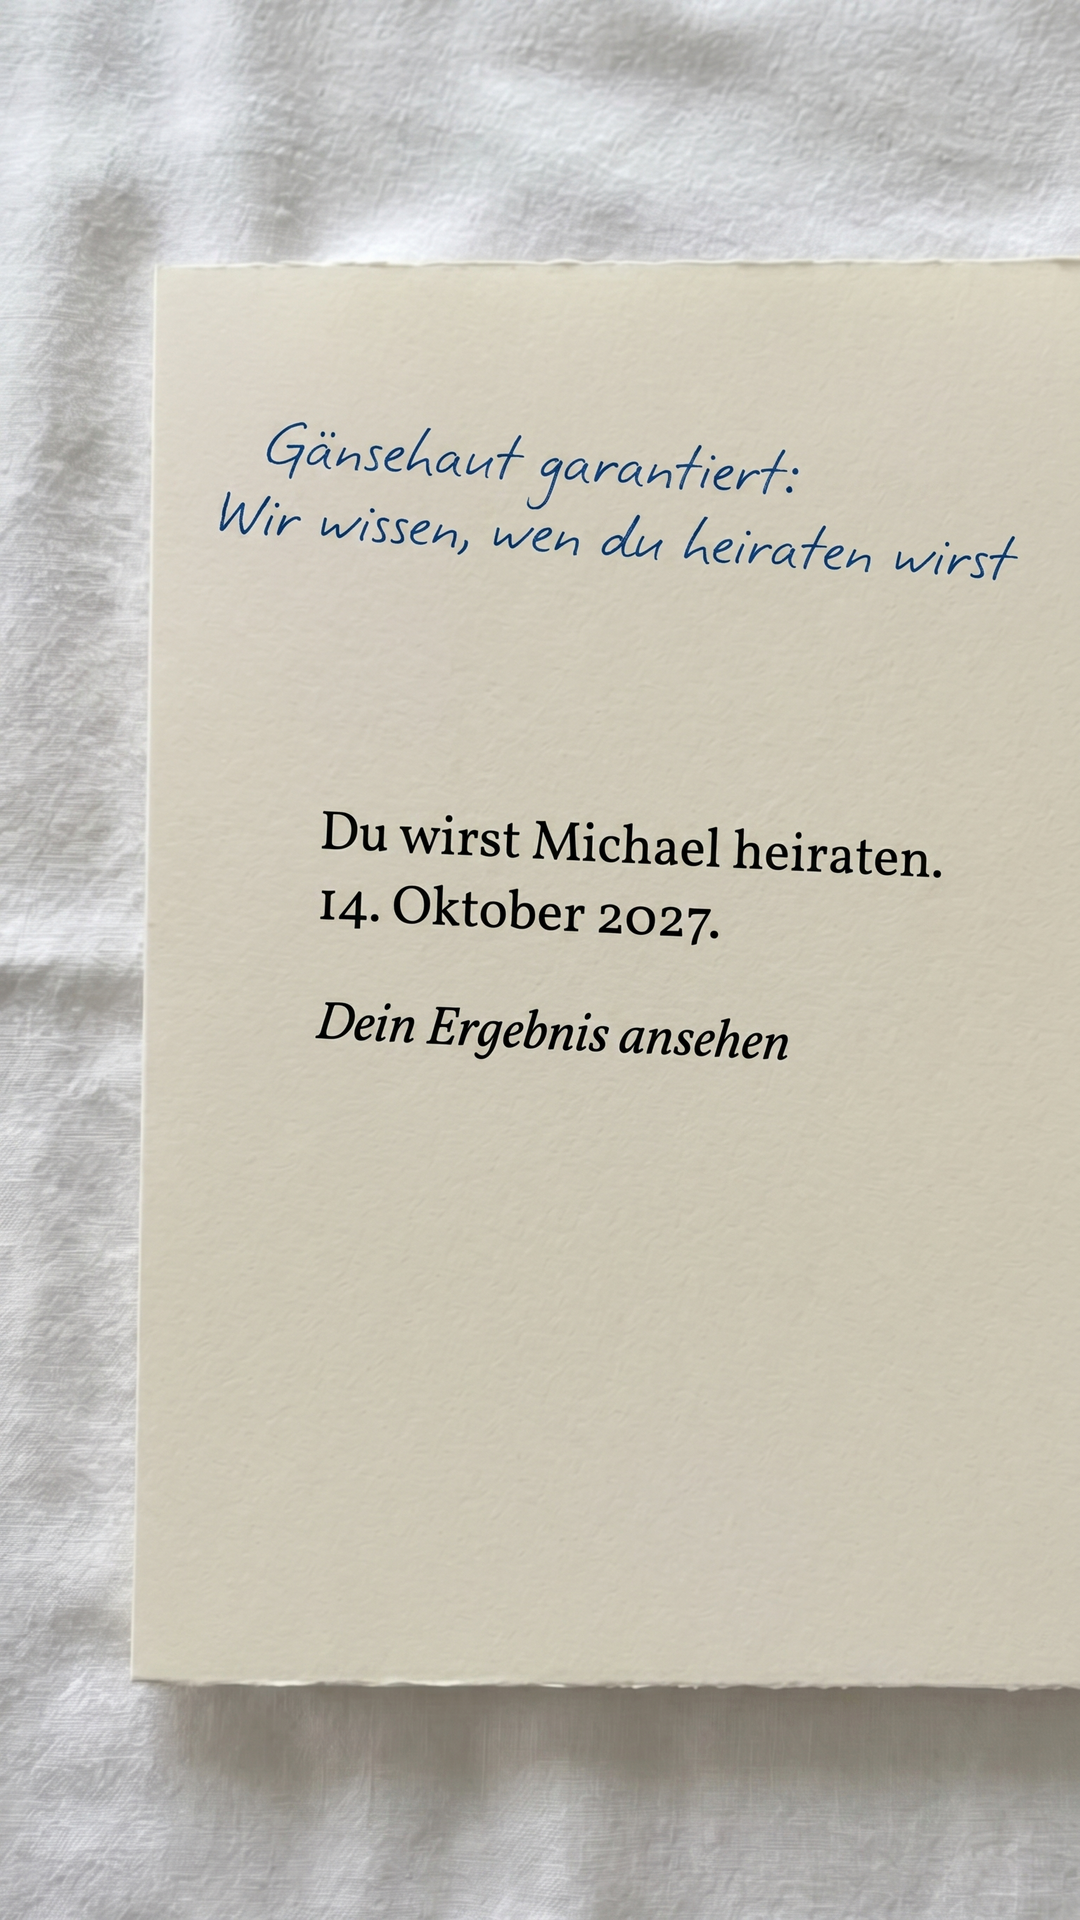 Gänsehaut garantiert:
Wir wissen, wen du heiraten wirst
Du wirst Michael heiraten.
14. Oktober 2027.
Dein Ergebnis ansehen